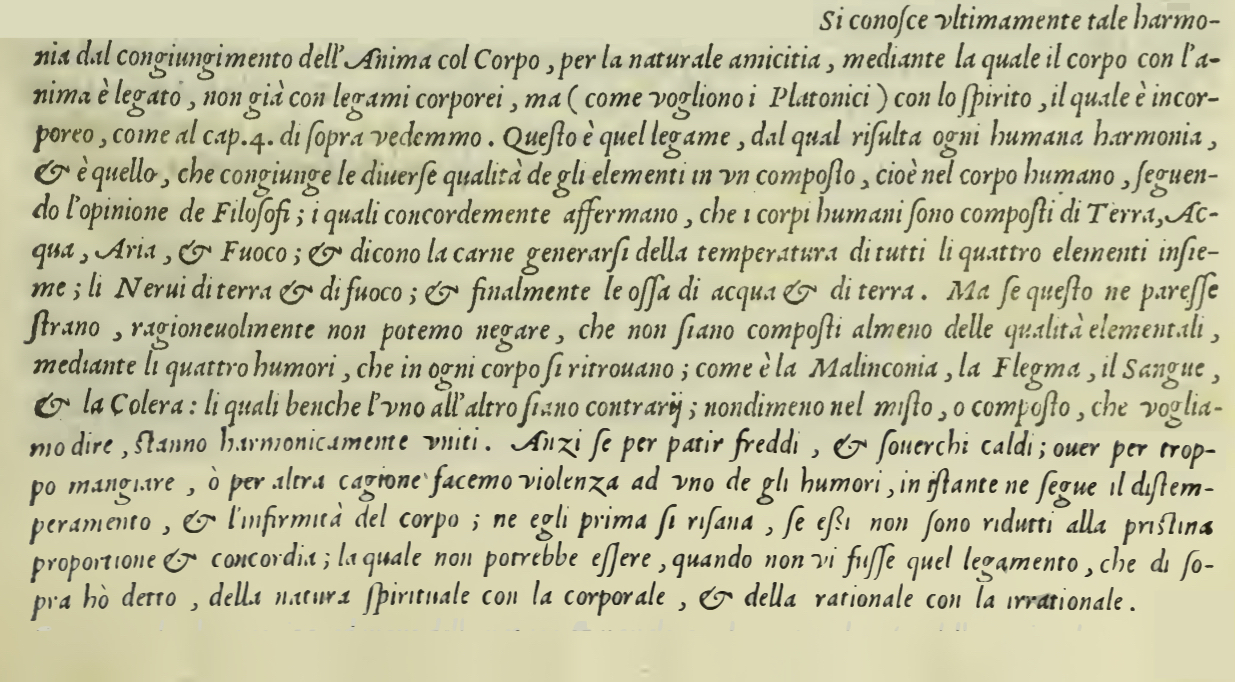 Si conoſce vltimamente tale harmo-
nia dal congiungimento dell'Anima col Corpo, per la naturale amicitia, mediante la quale il corpo con l'a-
nima è legato, non già con legami corporei, ma (come vogliono i Platonici) con lo ſpirito, il quale è incor-
poreo, come al cap.4. di ſopra vedemmo. Queſto è quel legame, dal qual riſulta ogni humana harmonia,
& è quello, che congiunge le diuerſe qualità de gli elementi in vn compoſto, cioè nel corpo humano, ſeguen-
do l'opinione de Filoſofi; i quali concordemente affermano, che i corpi humani ſono compoſti di Terra, Ac-
qua, Aria, & Fuoco; & dicono la carne generarſi della temperatura di tutti li quattro elementi inſie-
me; li Nerui di terra & di fuoco; & finalmente le oſſa di acqua & di terra. Ma ſe queſto ne pareſſe
ſtrano, ragioneuolmente non potemo negare, che non ſiano compoſti almeno delle qualità elementali,
mediante li quattro humori, che in ogni corpo ſi ritrouano; come è la Malinconia, la Flegma, il Sangue,
& la Colera: li quali benche l'vno all'altro ſiano contrarij; nondimeno nel miſto, o compoſto, che voglia-
mo dire, ſtanno harmonicamente vniti. Anzi ſe per patir freddi, & ſouerchi caldi; ouer per trop-
po mangiare, ò per altra cagione facemo violenza ad vno de gli humori, in iſtante ne ſegue il diſtem-
peramento, & l'infirmità del corpo; ne egli prima ſi riſana, ſe eſſi non ſono ridutti alla priſtina
proportione & concordia; la quale non potrebbe eſſere, quando non vi fuſſe quel legamento, che di ſo-
pra hò detto, della natura ſpirituale con la corporale, & della rationale con la irrationale.